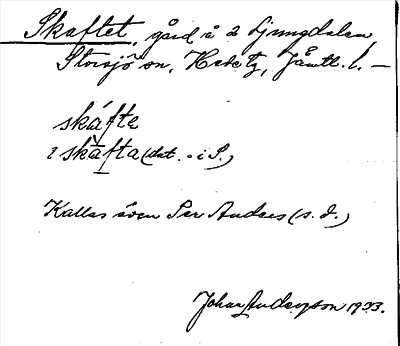 Skaftet, gård å 2 Ljungdalen
Storsjö sn, Hede tg, Jämtl. l. —
skáfte
i skafta (dat. - i S.)
Kallas även Per Anders (s. d.)
Johan Anderson 1933.